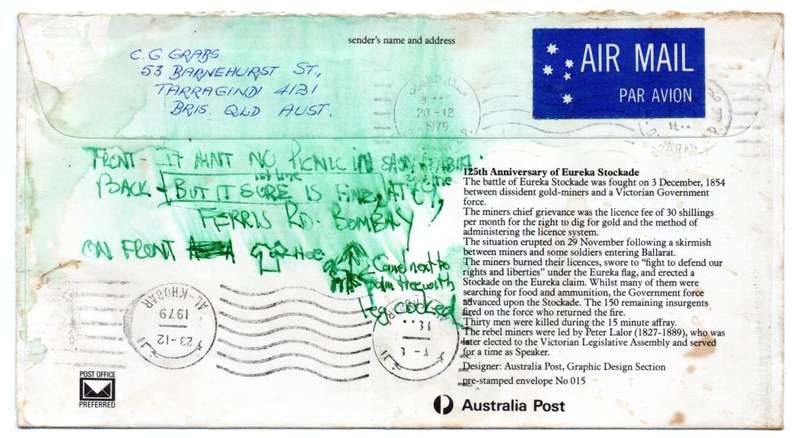 sender's name and address
C. G GRABS
53 BARNEHURST ST,
TARRAGINDI 4121
BRIS. QLD AUST.
AIR MAIL
PAR AVION
20-12
1979
FRONT - IT AINT NO PICNIC IN
BACK - BUT IT SURE IS FINE, AT
FERRIS RD. BOMBAY
ON FRONT
next to
leg cooked
125th Anniversary of Eureka Stockade
The battle of Eureka Stockade was fought on 3 December, 1854
between dissident gold-miners and a Victorian Government
force.
The miners chief grievance was the licence fee of 30 shillings
per month for the right to dig for gold and the method of
administering the licence system.
The situation erupted on 29 November following a skirmish
between miners and some soldiers entering Ballarat.
The miners burned their licences, swore to "fight to defend our
rights and liberties" under the Eureka flag, and erected a
Stockade on the Eureka claim. Whilst many of them were
searching for food and ammunition, the Government force
advanced upon the Stockade. The 150 remaining insurgents
fired on the force who returned the fire.
Thirty men were killed during the 15 minute affray.
The rebel miners were led by Peter Lalor (1827-1889), who was
later elected to the Victorian Legislative Assembly and served
for a time as Speaker.
Designer: Australia Post, Graphic Design Section
pre-stamped envelope No 015
AL-KHOBAR
1979
23-12
POST OFFICE
PREFERRED
Australia Post